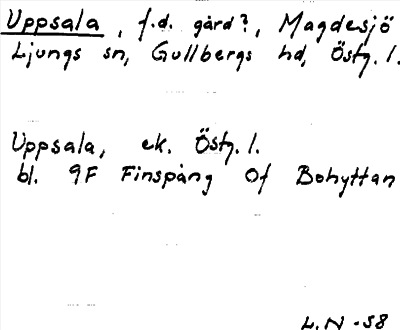 Uppsala, f.d. gård?, Magdesjö
Ljungs sn, Gullbergs hd, Östg. l.
Uppsala, ek. Östg. l.
bl. 9F Finspång 0f Bohyttan
L.N -58